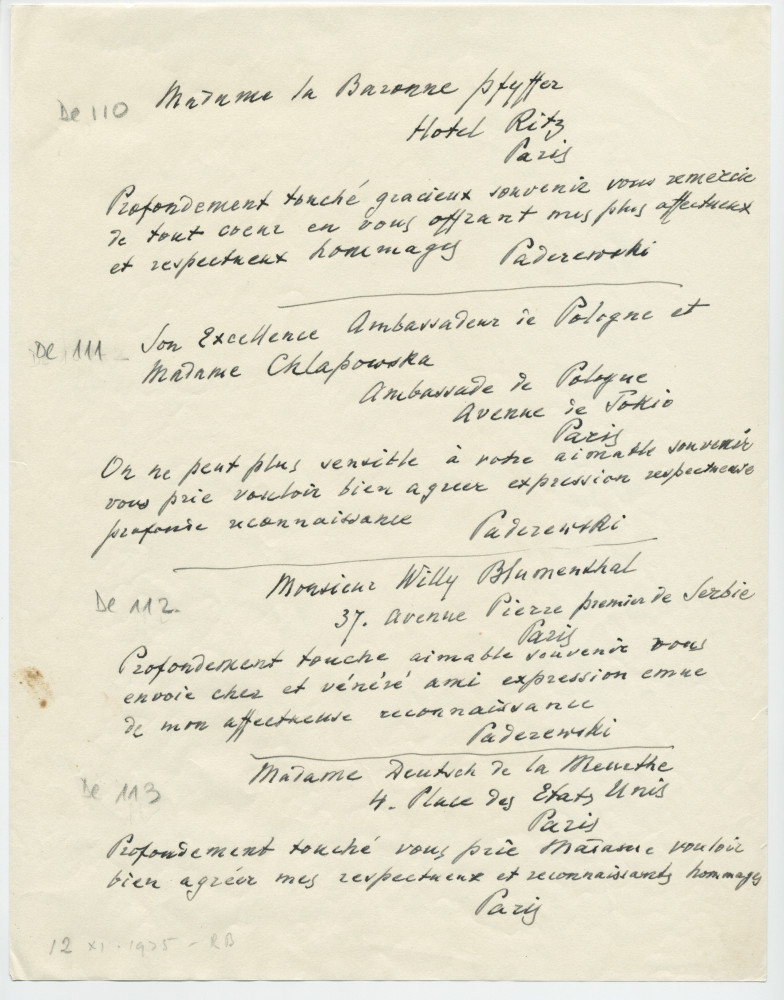 De 110
Madame la Baronne Pfyffer
Hotel Ritz
Paris
Profondement touché gracieux souvenir vous remercie
de tout coeur en vous offrant mes plus affectueux
et respectueux hommages Paderewski
De 111
Son Excellence Ambassadeur de Pologne et
Madame Chlapowska
Ambassade de Pologne
Avenue de Tokio
Paris
On ne peut plus sensible à votre aimable souvenir
vous prie vouloir bien agreer expression respectueuse
profonde reconnaissance Paderewski
De 112.
Monsieur Willy Blumenthal
37. Avenue Pierre premier de Serbie
Paris
Profondement touche aimable souvenir vous
envoie cher et vénéré ami expression emue
de mon affectueuse reconnaissance
Paderewski
De 113
Madame Deutsch de la Meurthe
4. Place des Etats Unis
Paris
Profondement touché vous prie Madame vouloir
bien agréer mes respectueux et reconnaissants hommages
Paris
12 XI. 1935 - RB